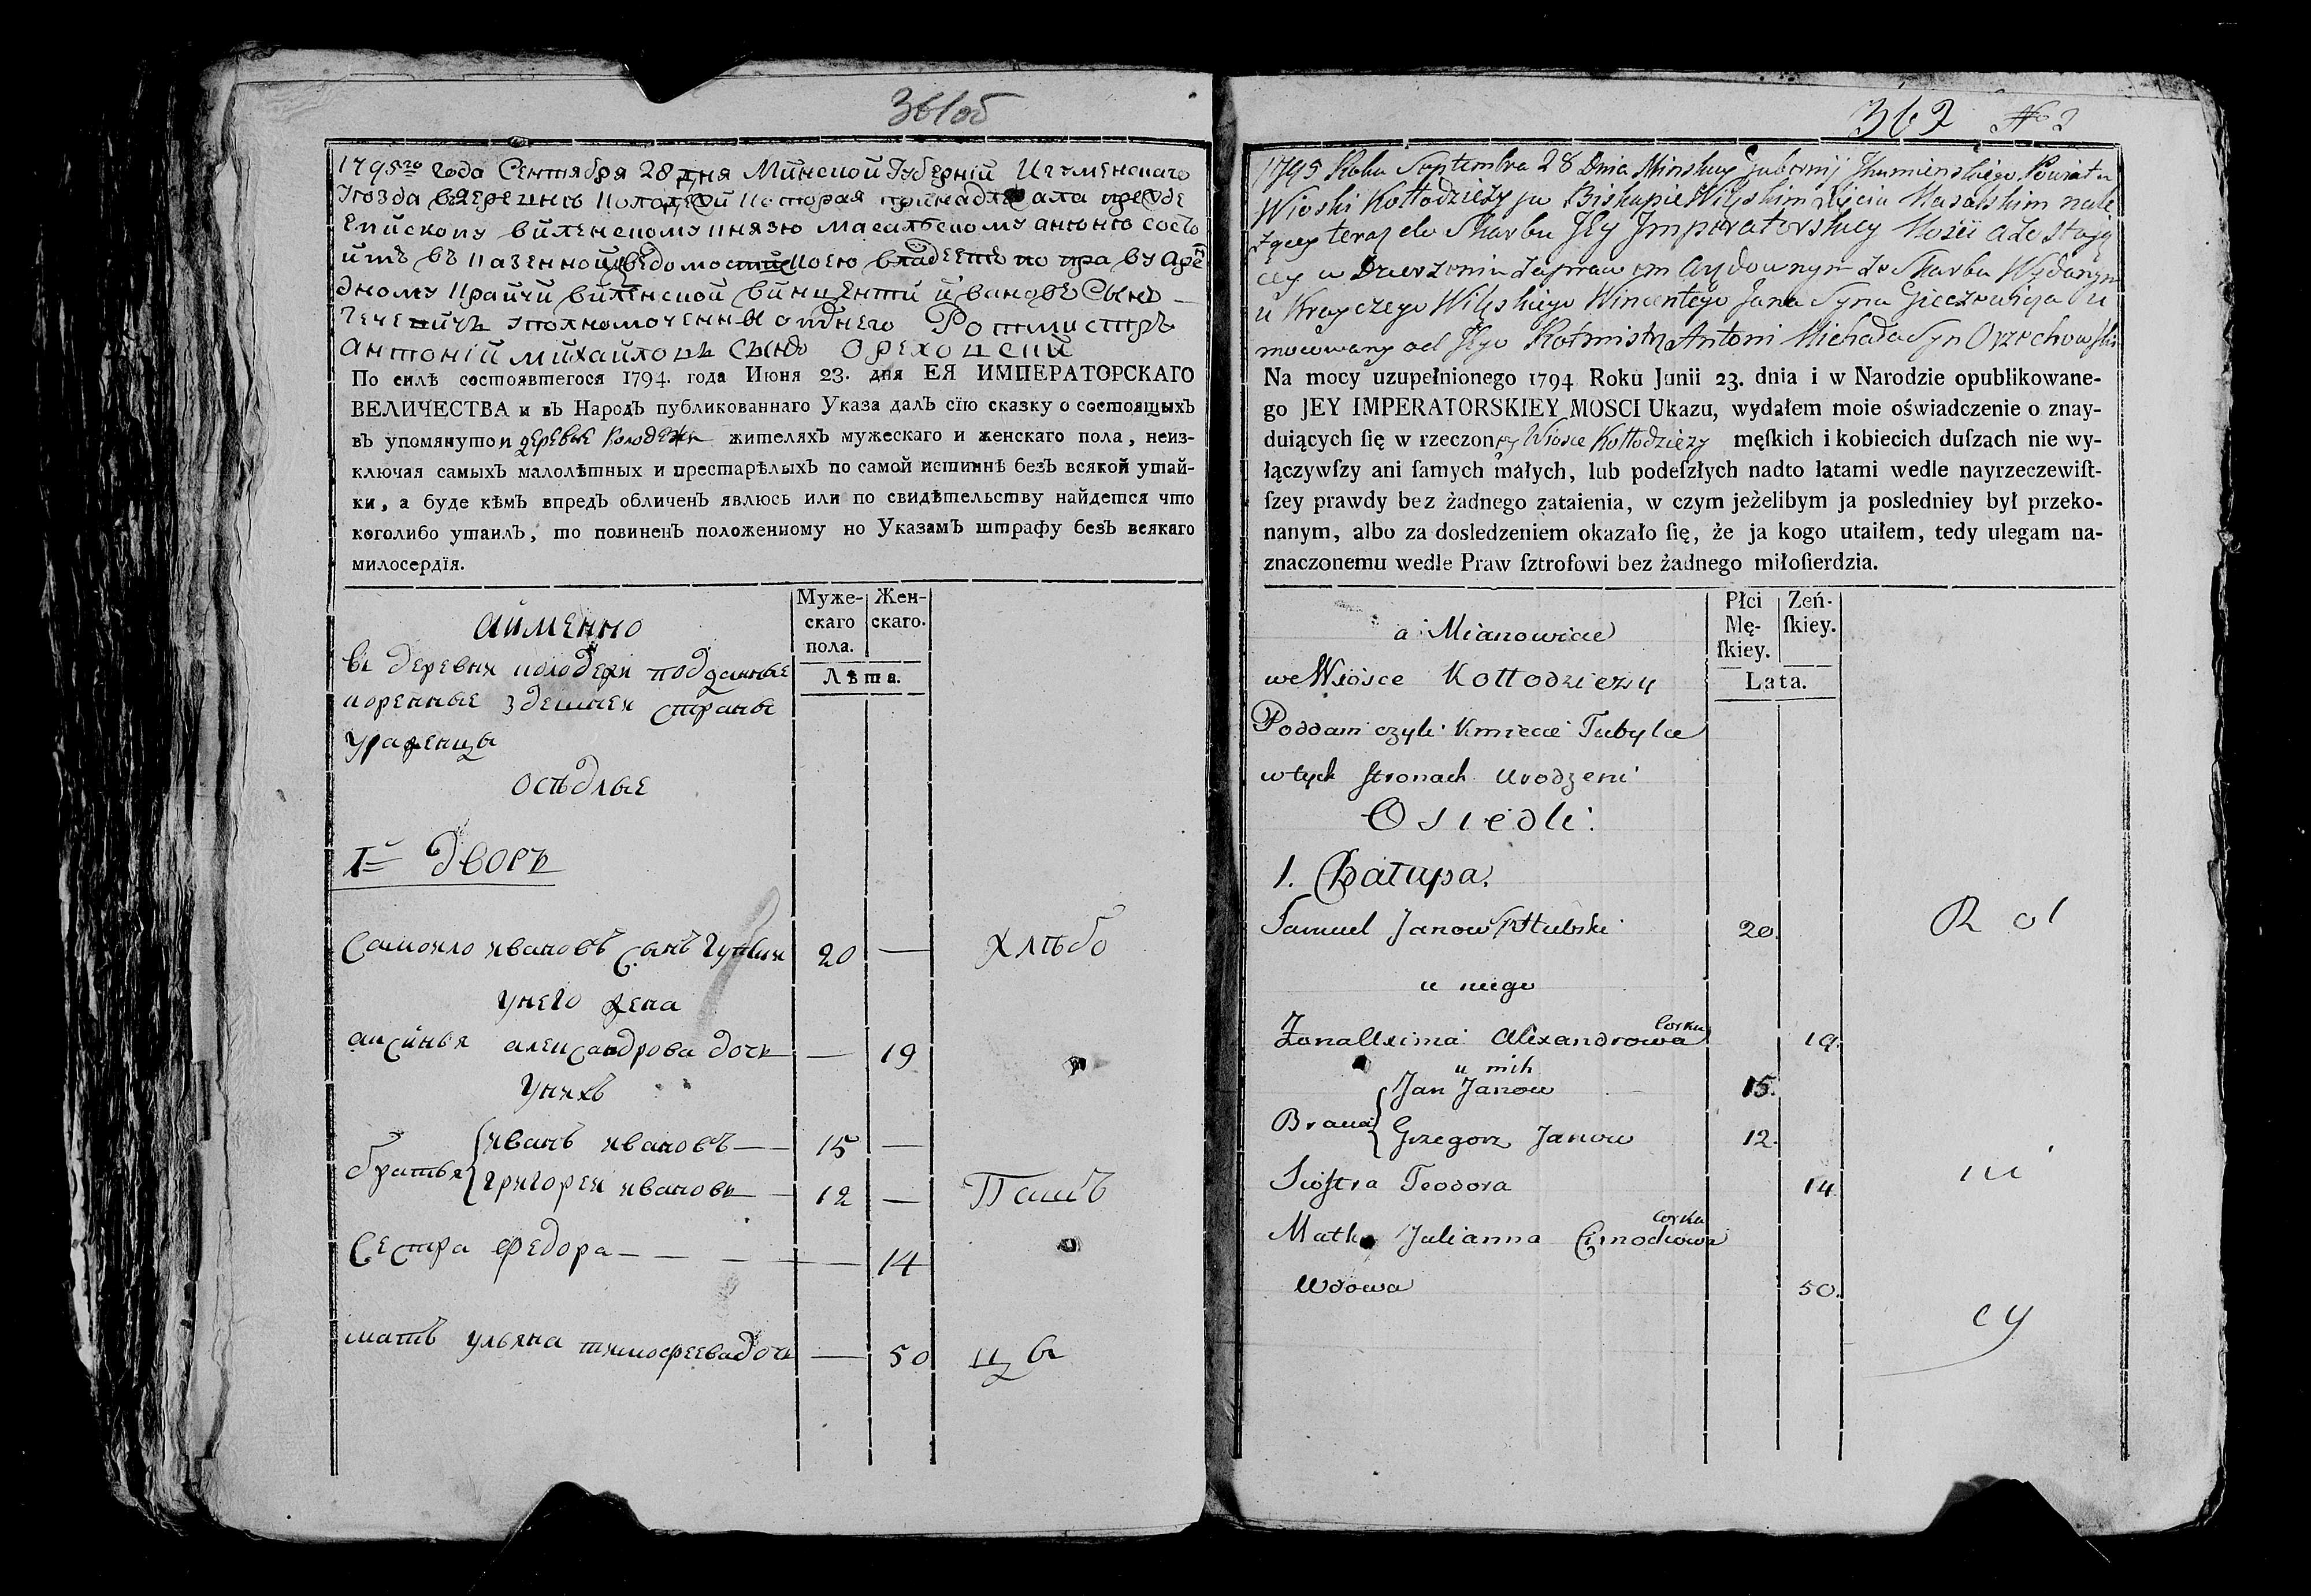 361об
1795го года Сентября 28 дня Минской Губерній Игуменскаго
Уезда в деревне Колодежи которая принадлежала прежде
Епископу виленскому князю масальскому а ныне состо
итъ въ казенной ведомости коею владеетъ по праву Арен
дному Крайчій виленской винценти ивановъ Сынъ
Гечевичъ уполномоченны от него Ротмистръ
Антоній михайловъ Сынъ Ореховскій
По силѣ состоявшегося 1794. года Июня 23. дня ЕЯ ИМПЕРАТОРСКАГО
ВЕЛИЧЕСТВА и въ Народъ публикованнаго Указа далъ сїю сказку о состоящыхъ
въ упомянутои деревне Колодежи жителяхъ мужескаго и женскаго пола, неиз-
ключая самыхъ малолѣтных и престарѣлыхъ по самой истиннѣ безъ всякой утай-
ки, а буде кѣмъ впредъ обличенъ явлюсь или по свидѣтельству найдется что
коголибо утаилъ, то повиненъ положенному по Указамъ штрафу безъ всякаго
милосердїя.
Муже-
скаго
пола.
Жен-
скаго.
Лѣта.
а именно
въ деревни колодежи подданные
коренные здешней страны
уроженцы
оседлые
1й дворъ
Самойло ивановъ сынъ 20 — хлѣбо
у него жена
аксинья александрова дочь — 19
у нихъ
братья { иванъ ивановъ — 15 —
григорей ивановъ — 12 — Паш
Сестра федора — 14
мать ульяна тимофеева дочь — 50 цы
362 № 2
1795 Roku Septembra 28 Dnia Minskiey Gubernij Ihumienskiego Powiatu
Wioski Kołłodzieży po Biskupie Wileńskim Xięciu Masalskim nale
żącey teraz do Skarbu Jey Imperatorskiey Mości a zostają
cey w Dzierżeniu za prawem Arędownym ze Skarbu Wydanym
u Krayczego Wileńskiego Wincentego Jana Syna Gieczewicza u
mocowany od Jego Rotmistrz Antoni Michała Syn Orzechowski
Na mocy uzupełnionego 1794 Roku Junii 23. dnia i w Narodzie opublikowane-
go JEY IMPERATORSKIEY MOSCI Ukazu, wydałem moie oświadczenie o znay-
duiących ſię w rzeczoney Wiosce Kołłodzieży męſkich i kobiecich duſzach nie wy-
łączywſzy ani ſamych małych, lub podeſzłych nadto latami wedle nayrzeczewiſt-
ſzey prawdy bez żadnego zataienia, w czym jeżelibym ja posledniey był przeko-
nanym, albo za dosledzeniem okazało ſię, że ja kogo utaiłem, tedy ulegam na-
znaczonemu wedle Praw ſztrofowi bez żadnego miłoſierdzia.
Płci
Mę-
ſkiey.
Zeń-
ſkiey.
Lata.
a Mianowicie
we Wiosce Kołłodzieży
Poddani czyli Kmiecie Tubylce
w tych stronach urodzeni
Osiedli
1. Chałupa.
Samuel Janow 20. Rol
u niego
Żona Axima Alexandrowa Corka 19.
u nich
Bracia { Jan Janow 15.
Grzegorz Janow 12.
Siostra Teodora 14. ni
Matka Julianna Corka
Wdowa 50.
cy